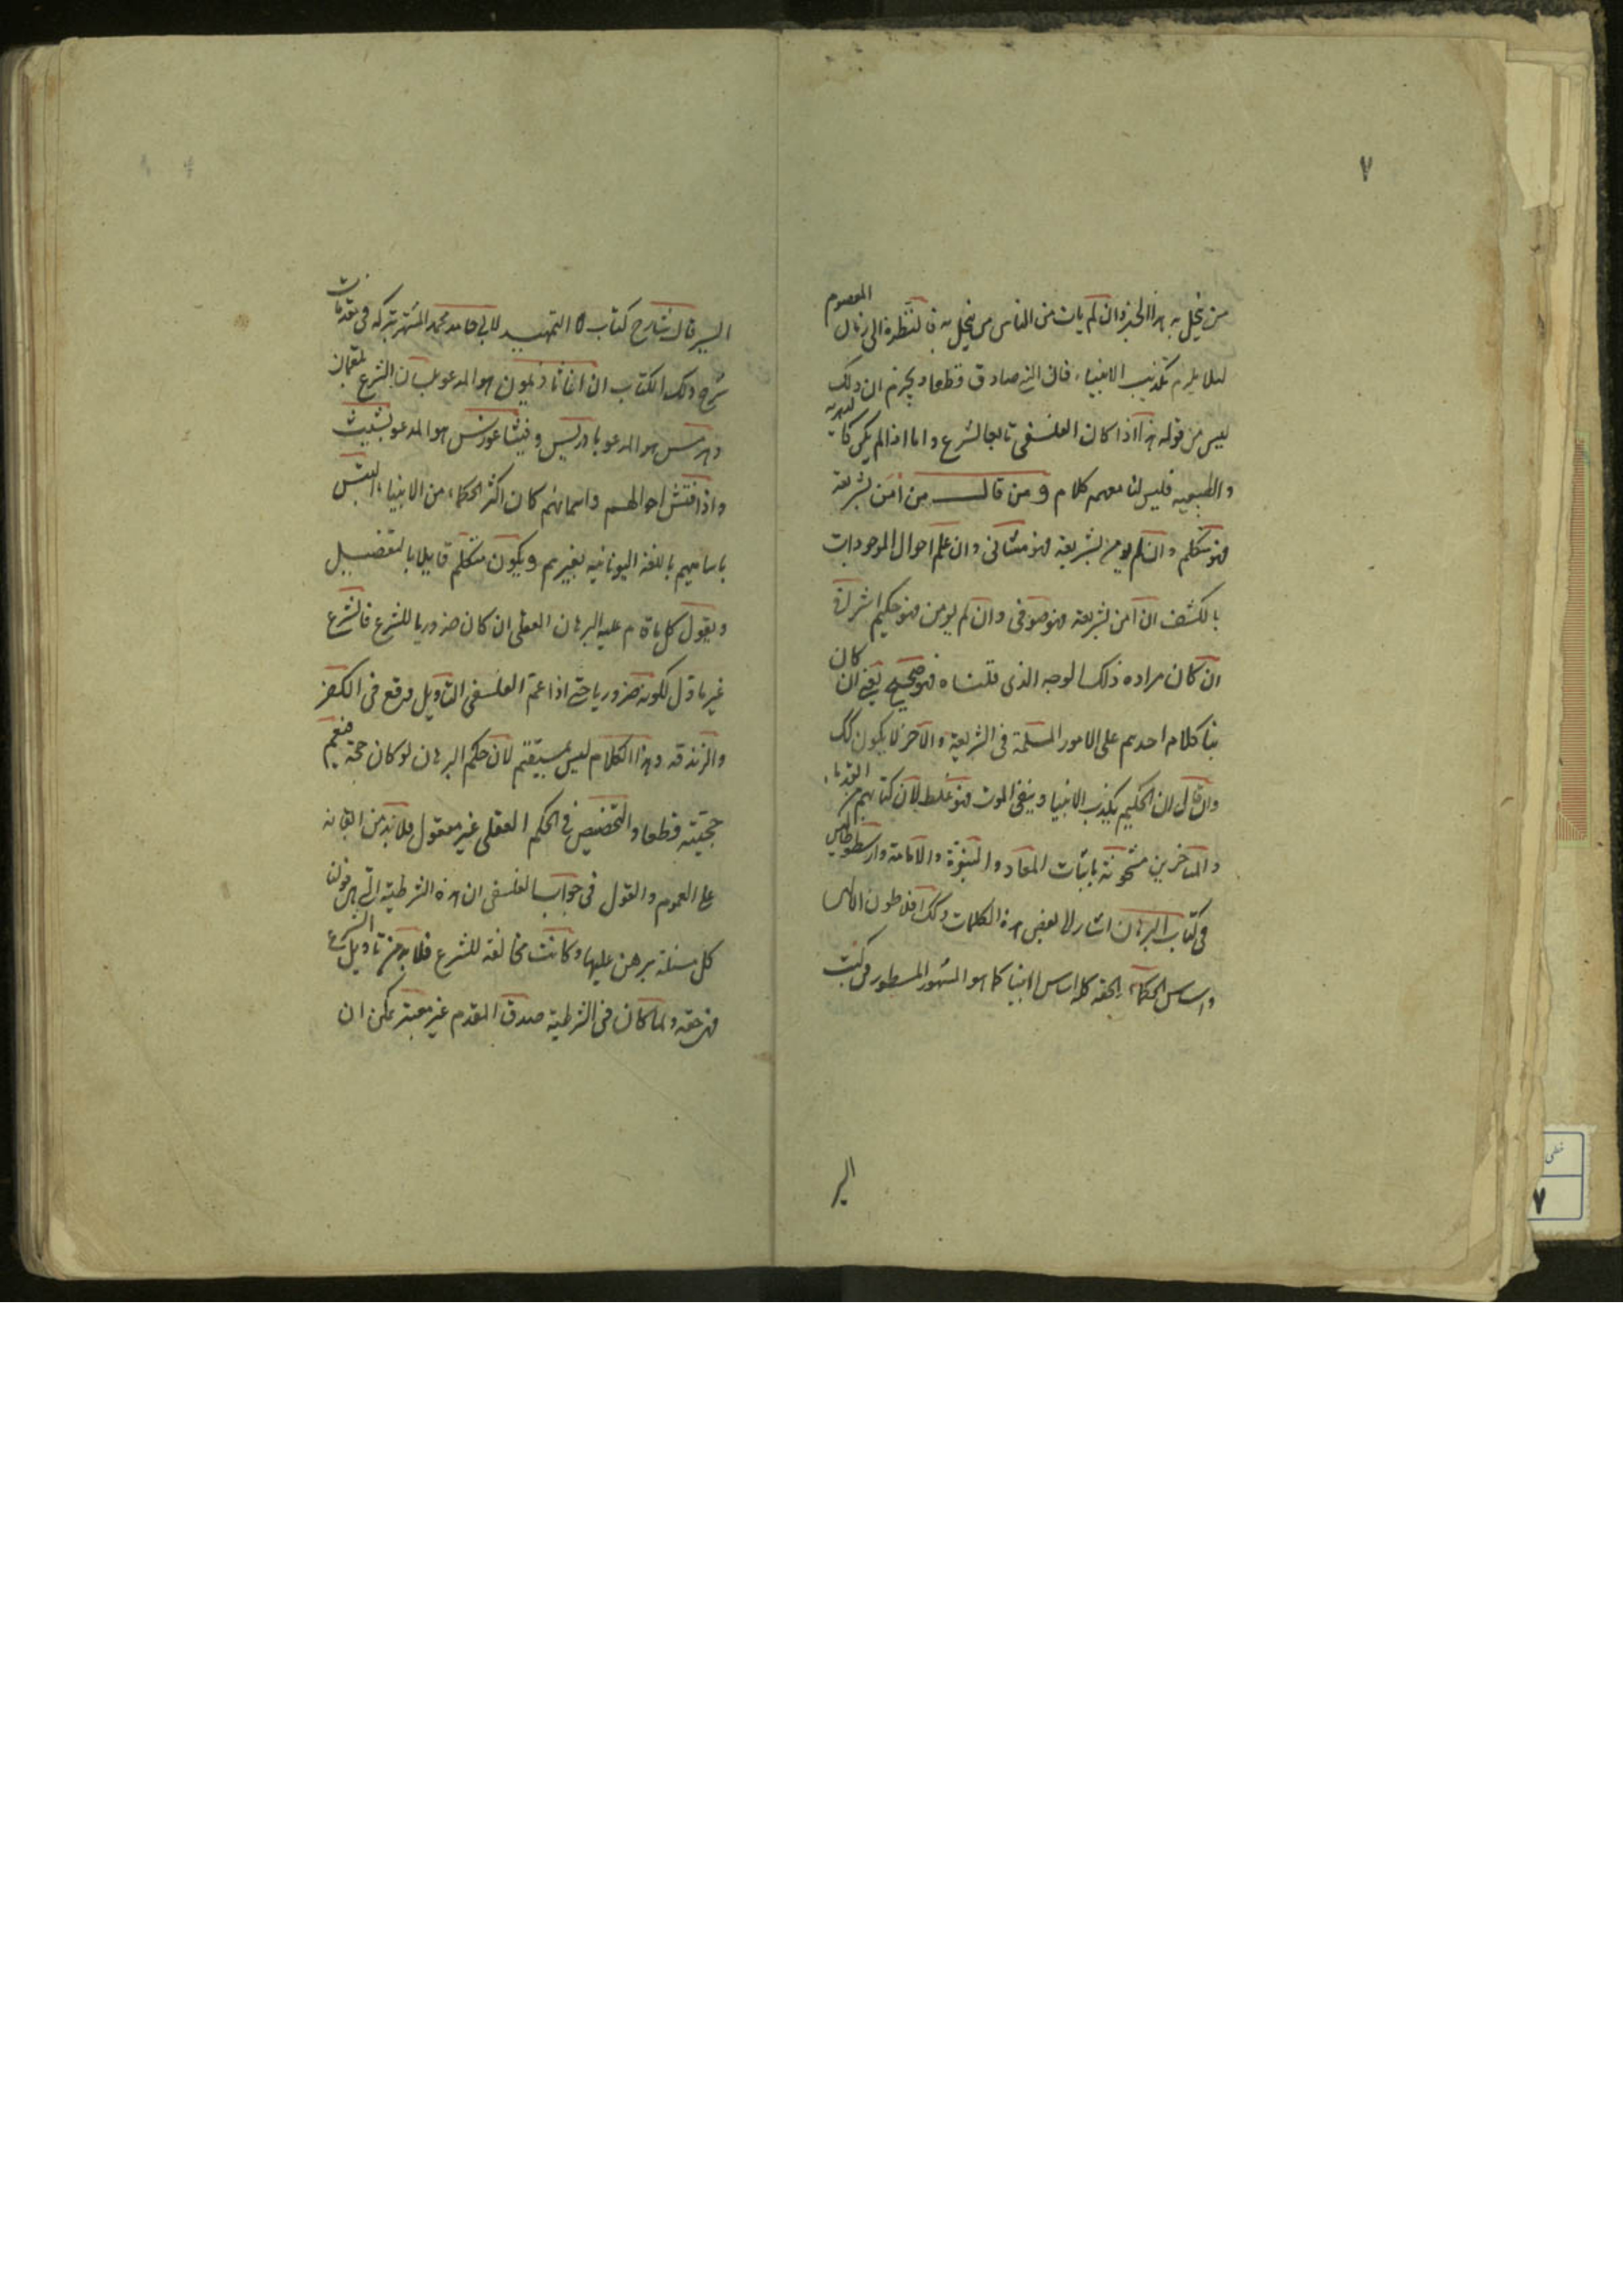 ٧
من نحل به هذا الخبر وان لم يات من الناس من يحل به فالنتظرة الى زمان المعصوم
لئلا يلزم تكذيب الانبياء فان النبي صادق قطعا ويجزم ان ذلك
ليس من قوله هذا اذا كان الفلسفى تابعا لشرع واما اذا لم يكن كالدهرية
والطبيعيه فليس لنا معهم كلام ومن قال من امن بشريعة
فهو متكلم وان لم يومن بشريعة فهو مشائى وان علم احوال الموجودات
بالكشف ان امن بشريعة فهو صوفى وان لم يومن فهو حكيم اشراق
ان كان مراده ذلك الوجه الذى قلناه فهو صحيح يعنى ان كان
بنا كلام احدهم على الامور المسلمة فى الشريعة والآخر لا يكون كك
وان قال ان الحكيم يكذب الانبيا وينفى الموت فهو غلط لان كتابهم من القدماء
والمتاخرين مشحونة باثبات المعاد والنبوة والامامة وارسطوطاليس
فى كتاب البرهان اشار الى بعض هذه الكلمات وكك افلاطون الالهى
واساس الحكماء الحقه كله اساس الانبيا كما هو المشهور المسطور فى كتب
السير
السير قال شارح كتاب التمهيد لابى حامد محمد المشتهر بتركه فى مقدمات
شرح ذلك الكتاب ان اغاثاذيمون هو المدعو بلسان الشرع لقمان
وهرمس هو المدعو بادريس وفيثاغورس هو المدعو بشيث
واذا فتش احوالهم واسمائهم كان اكثر الحكماء من الانبياء التبس
باساميهم باللغة اليونانيه لغيرهم ويكون متكلم قايلا بالتفضيل
ويقول كل ما قام عليه البرهان العقلى ان كان ضروريا للشرع فالشرع
غير ماول لكونه ضروريا حتى اذا عمم الفلسفى التاويل وقع فى الكفر
والزندقه وهذا الكلام ليس بمستقيم لان حكم البرهان لو كان حجة فيعم
حجيته قطعا والتخصيص فى الحكم العقلى غير معقول فلا بد من ابقائه
على العموم والقول فى جواب الفلسفى ان هذه الشرطية التى هى قولنا
كل مسئلة برهن عليها وكانت مخالفة للشرع فلا بد من تاويل الشرع
فهى حقه ولما كان فى الشرطية صدق المقدم غير معتبر يمكن ان
خطى
٧